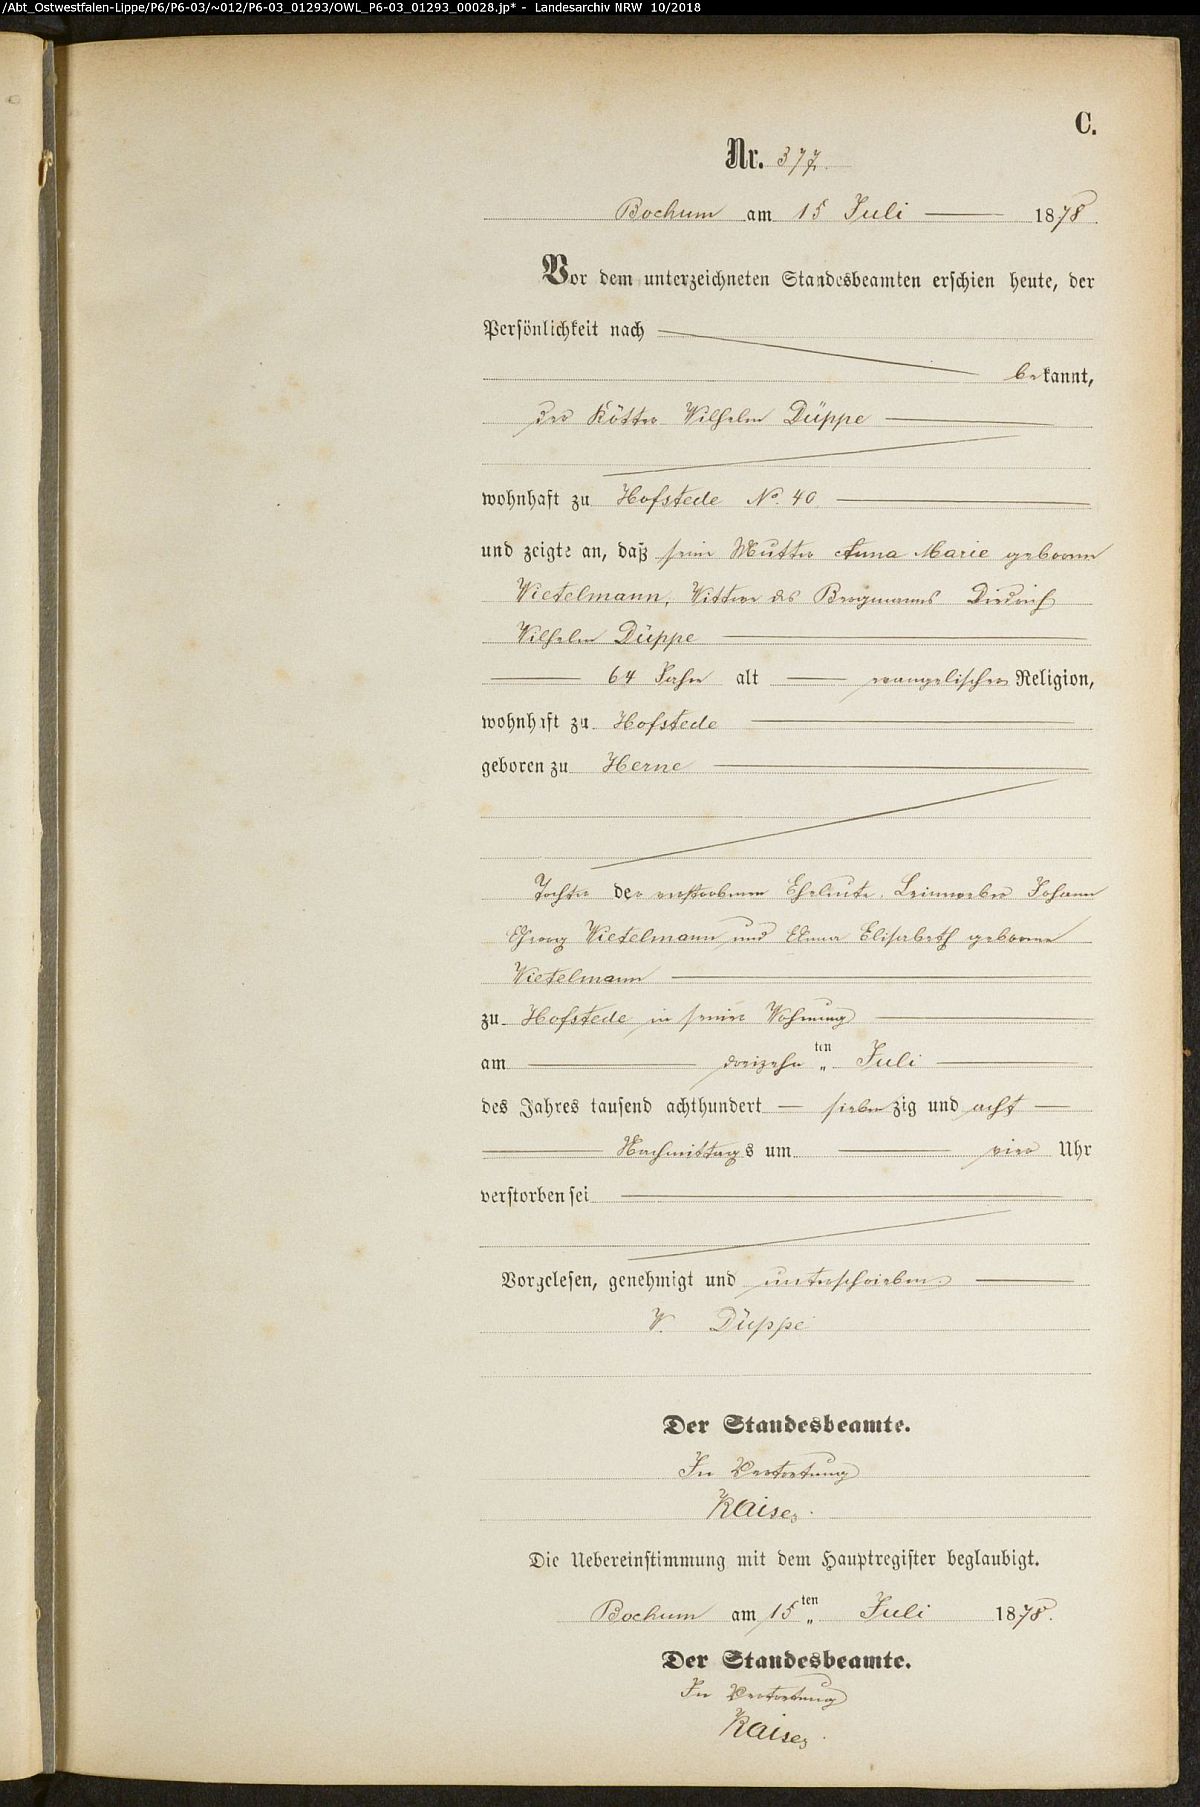 /Abt_Ostwestfalen-Lippe/P6/P6-03/~012/P6-03_01293/OWL_P6-03_01293_00028.jp* - Landesarchiv NRW 10/2018
C.
Nr. 377.
Bochum am 15 Juli 1878
Vor dem unterzeichneten Standesbeamten erschien heute, der
Persönlichkeit nach
bekannt,
der Kötter Wilhelm Düppe
wohnhaft zu Hofstede No. 40
und zeigte an, daß seine Mutter Anna Marie geborene
Wietelmann, Wittwe des Bergmanns Diedrich
Wilhelm Düppe
64 Jahre alt evangelischer Religion,
wohnhaft zu Hofstede
geboren zu Herne
Tochter der verstorbenen Eheleute, Leinweber Johann
Georg Wietelmann und Anna Elisabeth geborene
Wietelmann
zu Hofstede in seiner Wohnung
am dreizehn ten „ Juli
des Jahres tausend achthundert siebenzig und acht
Nachmittags um vier Uhr
verstorben sei
Vorgelesen, genehmigt und unterschrieben.
W. Düppe
Der Standesbeamte.
In Vertretung
Kaiser.
Die Uebereinstimmung mit dem Hauptregister beglaubigt.
Bochum am 15 ten „ Juli 1878.
Der Standesbeamte.
In Vertretung
Kaiser.